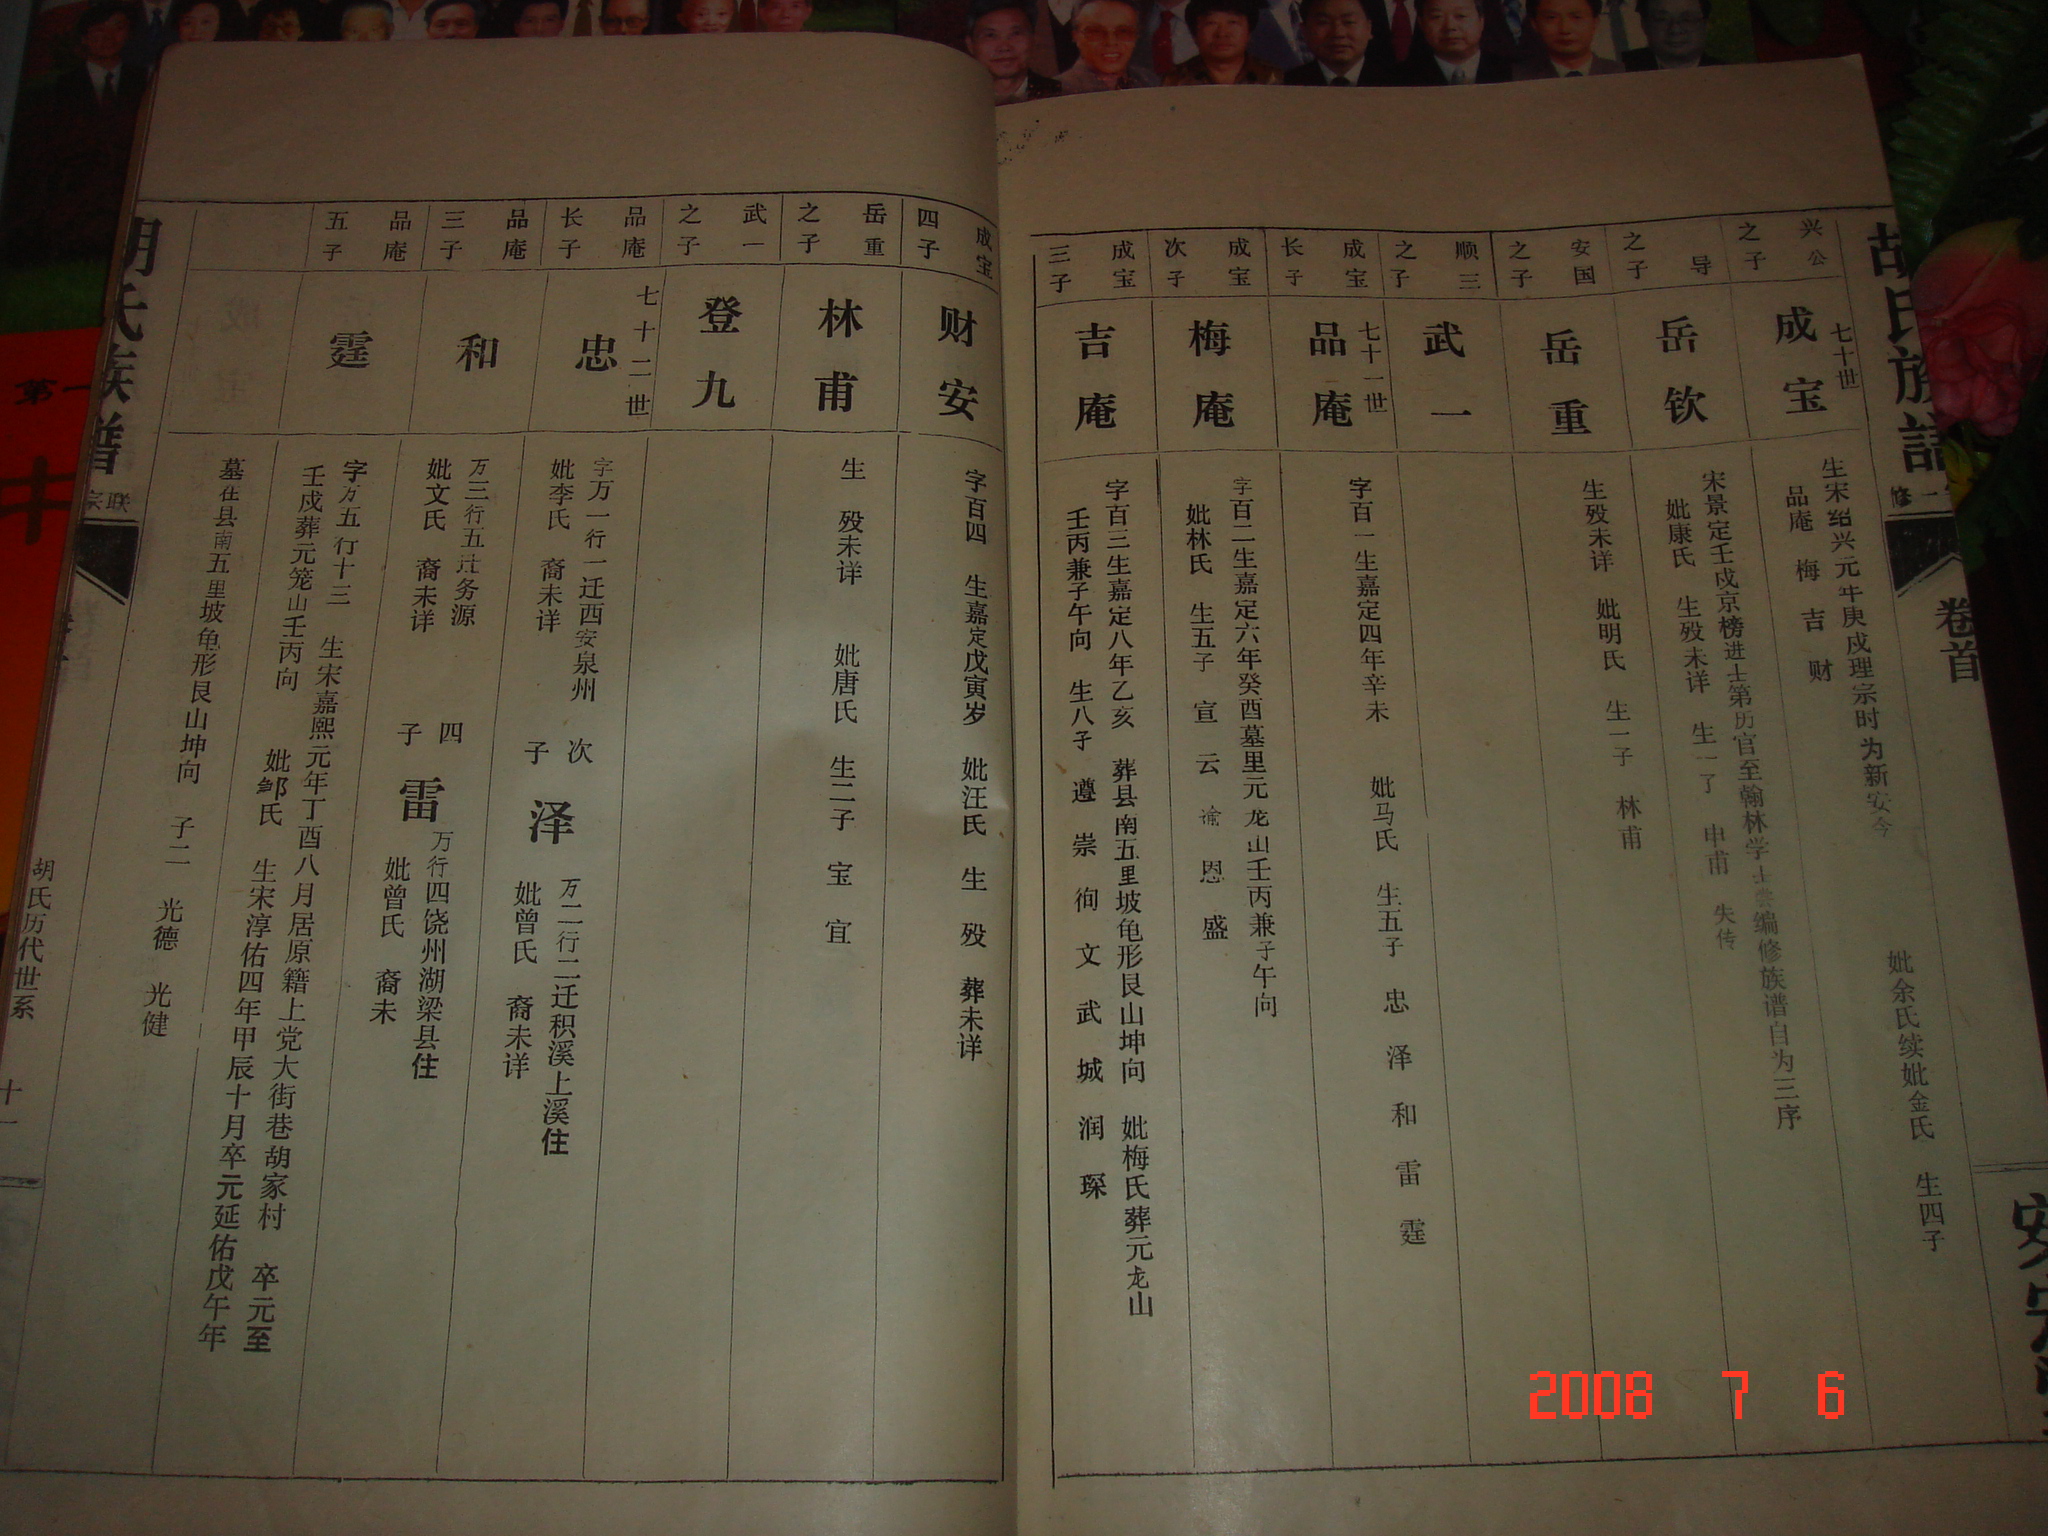 胡氏族谱
二修
卷首
兴公之子
七十世
成宝
生宋绍兴元年庚戌理宗时为新安今
妣余氏续妣金氏 生四子
品庵 梅 吉 财
导之子
岳钦
宋景定壬戌京榜进士第历官至翰林学士尝编修族谱自为三序
妣康氏 生殁未详 生一子 申甫 失传
安国之子
岳重
生殁未详 妣明氏 生一子 林甫
顺三之子
武一
成宝长子
七十一世
品庵
字百一生嘉定四年辛未 妣马氏 生五子 忠 泽 和 雷 霆
成宝次子
梅庵
字百二生嘉定六年癸酉墓里元龙山壬丙兼子午向
妣林氏 生五子 宣 云 谕 恩 盛
成宝三子
吉庵
字百三生嘉定八年乙亥 葬县南五里坡龟形艮山坤向 妣梅氏葬元龙山
壬丙兼子午向 生八子 遵 崇 徇 文 武 城 润 琛
成宝四子
财安
字百四 生嘉定戊寅岁 妣汪氏 生 殁 葬未详
岳重之子
林甫
生 殁未详 妣唐氏 生二子 宝 宜
武一之子
登九
品庵长子
七十二世
忠
字万一行一迁西安泉州
妣李氏 裔未详
次子
泽
万二行二迁积溪上溪住
妣曾氏 裔未详
品庵三子
和
万三行五迁务源
妣文氏 裔未详
四子
雷
万行四饶州湖梁县住
妣曾氏 裔未
品庵五子
霆
字万五行十三 生宋嘉熙元年丁酉八月居原籍上党大街巷胡家村 卒元至
壬戌葬元笼山壬丙向 妣邹氏 生宋淳佑四年甲辰十月卒元延佑戊午年
墓在县南五里坡龟形艮山坤向 子二 光德 光健
胡氏族谱
联宗
胡氏历代世系
十一
第一
2008 7 6